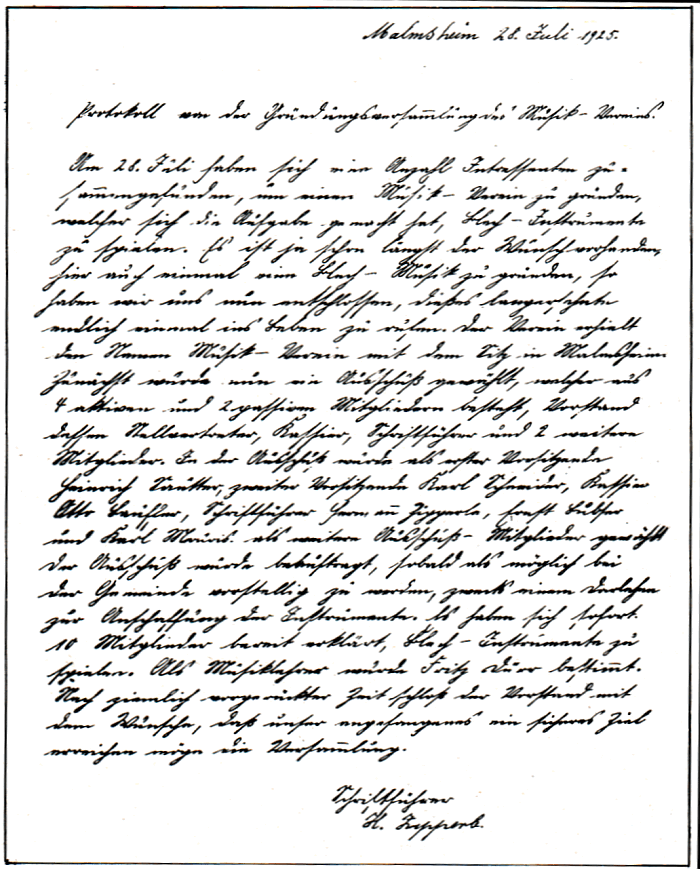 Malmsheim 28. Juli 1925.
Protokoll von der Gründungsversammlung des Musik-Vereins.
Am 28. Juli haben sich eine Anzahl Intressenten zu-
sammengefunden, um einen Musik-Verein zu gründen,
welcher sich die Aufgabe gemacht hat, Blech-Instrumente
zu spielen. Es ist ja schon längst der Wunsch vorhanden,
hier auch einmal eine Blech-Musik zu gründen, so
haben wir uns nun entschlossen, dieses langersehnte
endlich einmal ins Leben zu rufen. Der Verein erhielt
den Namen Musik-Verein mit dem Sitz in Malmsheim.
Zunächst wurde nun ein Ausschuß gewählt, welcher aus
4 aktiven und 2 passiven Mitgliedern besteht, Vorstand
dessen Stellvertreter, Kassier, Schriftführer und 2 weitere
Mitglieder. In der Ausschuß wurde als erster Vorsitzende
Heinrich Sautter, zweiter Vorsitzende Karl Schneider, Kassier
Otto, Schriftführer Hermann Zipperle, Ernst
und Karl als weitere Ausschuß-Mitglieder gewählt
Der Ausschuß wurde beauftragt, sobald als möglich bei
der Gemeinde vorstellig zu werden, zwecks einem Darlehen
zur Anschaffung der Instrumente. Es haben sich sofort
10 Mitglieder bereit erklärt, Blech-Instrumente zu
spielen. Als Musiklehrer wurde Fritz Dürr bestimmt.
Nach ziemlich vorgerückter Zeit schloß der Vorstand mit
dem Wunsche, daß unser angefangenes ein sicheres Ziel
erreichen möge die Versammlung.
Schriftführer
H. Zipperle.